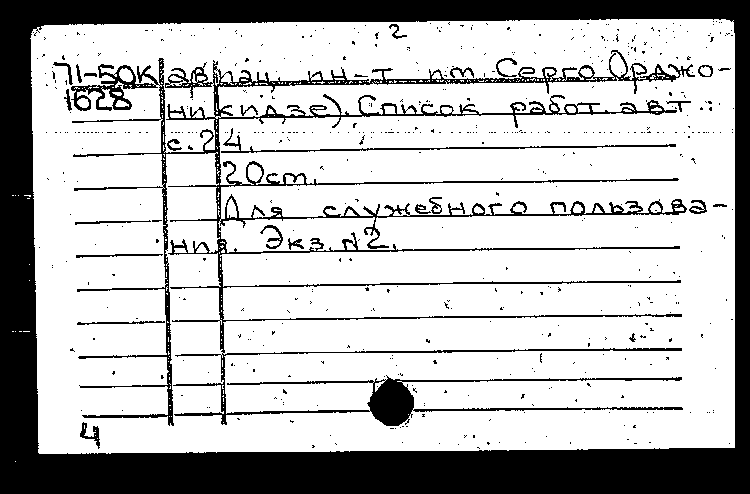 2
П1-50К авиац. ин-т им. Серго Орджо-
1628 никидзе). Список работ авт.:
с. 24.
20ст.
Для служебного пользова-
ния. Экз. N2.
4